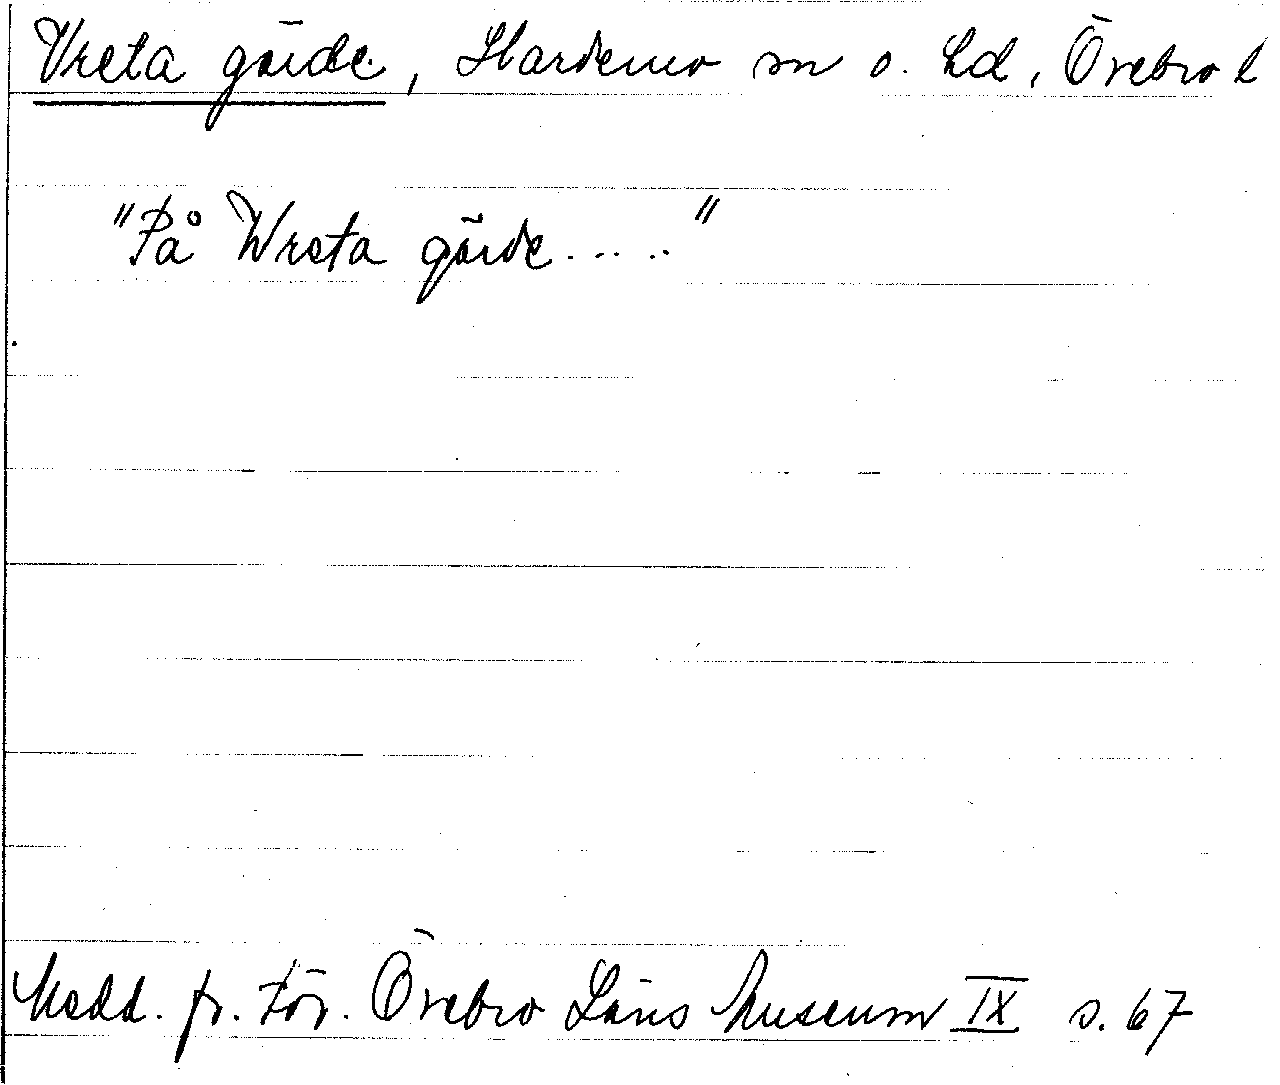 Vreta gärde, Hardemo sn o. hd, Örebro l
"På Wreta gärde....."
Medd. fr. För. Örebro Läns Museum IX s. 67